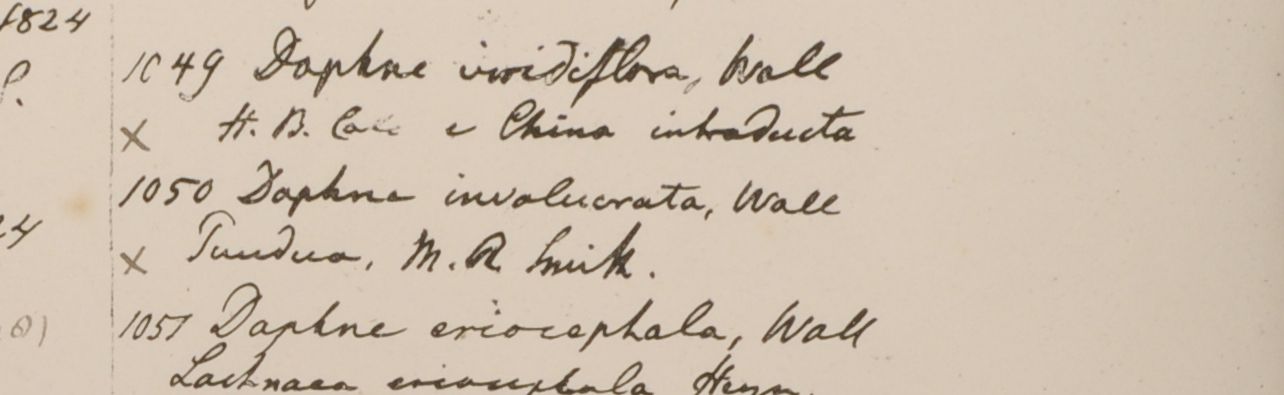 1824
1049 Daphne viridiflora, Wall
× H. B. Calc e China introducta
1050 Daphne involucrata, Wall
24
× Tundua, M. R. Smith.
1051 Daphne eriocephala, Wall
Lachnaea eriocephala Heyn.